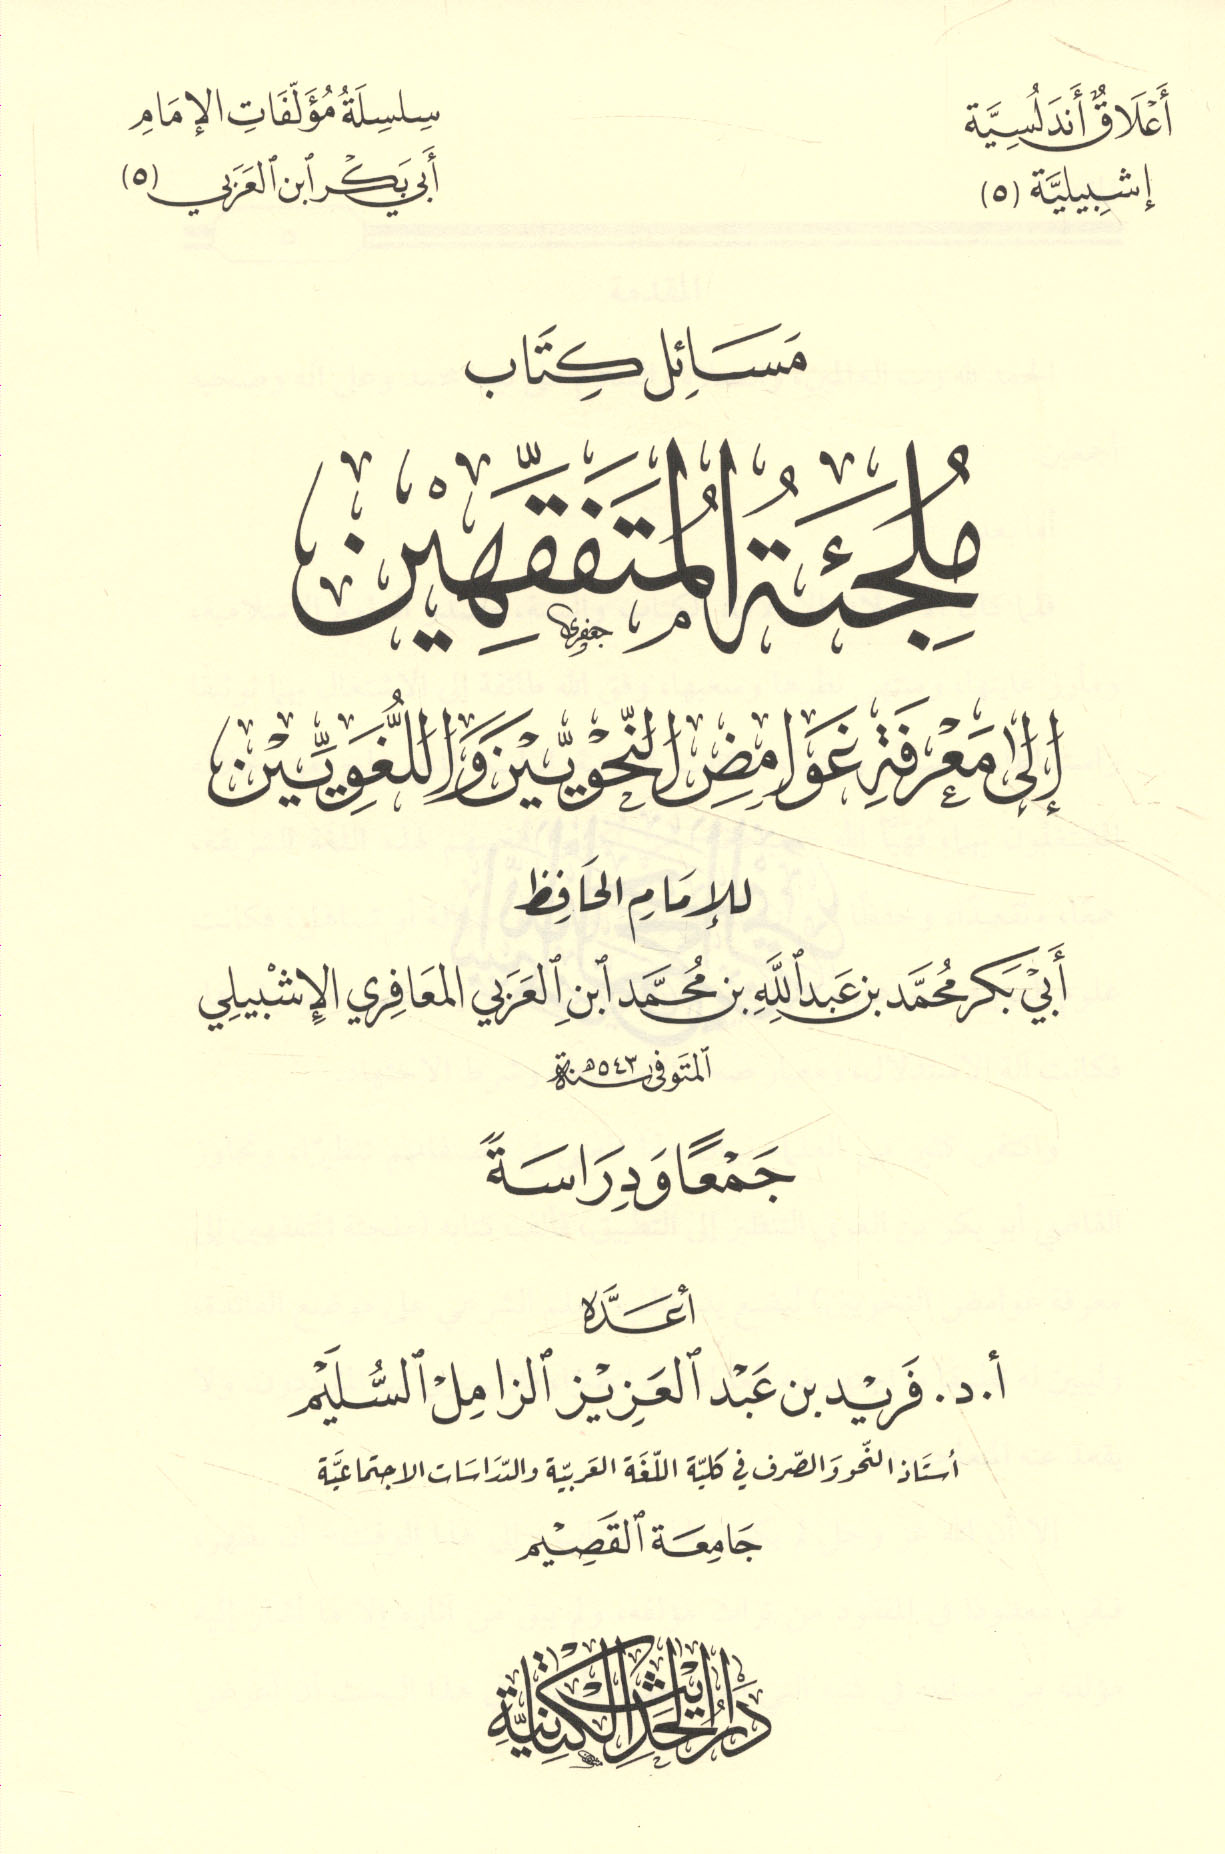 أَعْلَاقٌ أَندَلُسِيَّة
إشبِيليَّة (٥)
سِلسِلَةُ مُؤَلَّفَاتِ الإمَامِ
أَبِي بَكْر ٱبن العَرَبي (٥)
مَسَائِل كِتَاب
مُلجِئَةُ المُتَفَقِّهِيْن
إِلَىٰ مَعْرِفَةِ غَوَامِضِ النَّحْوِيِّيْنَ وَاللُّغَوِيِّيْن
للإمَامِ الحَافِظ
أَبِيْ بَكر مُحَمَّد بن عَبدِ ٱللَّهِ بن مُحَمَّد ٱبنِ العَرَبي المعَافِري الإشْبِيلِي
المتَوفى سنة ٥٤٣هـ
جَمْعًا وَدِرَاسَةً
أعَدَّه
أ. د. فَرِيْد بن عَبْد ٱلعَزِيْز ٱلزامِلْ ٱلسُّلَيْم
أستَاذ النَّحو وَالصَّرف في كليّة اللّغَة العَربيّة والدّرَاسَات الاجتماعيَّة
جَامِعَة ٱلقَصِيْم
دَارُ الحَدِيثِ الكَتَّانِيَّة